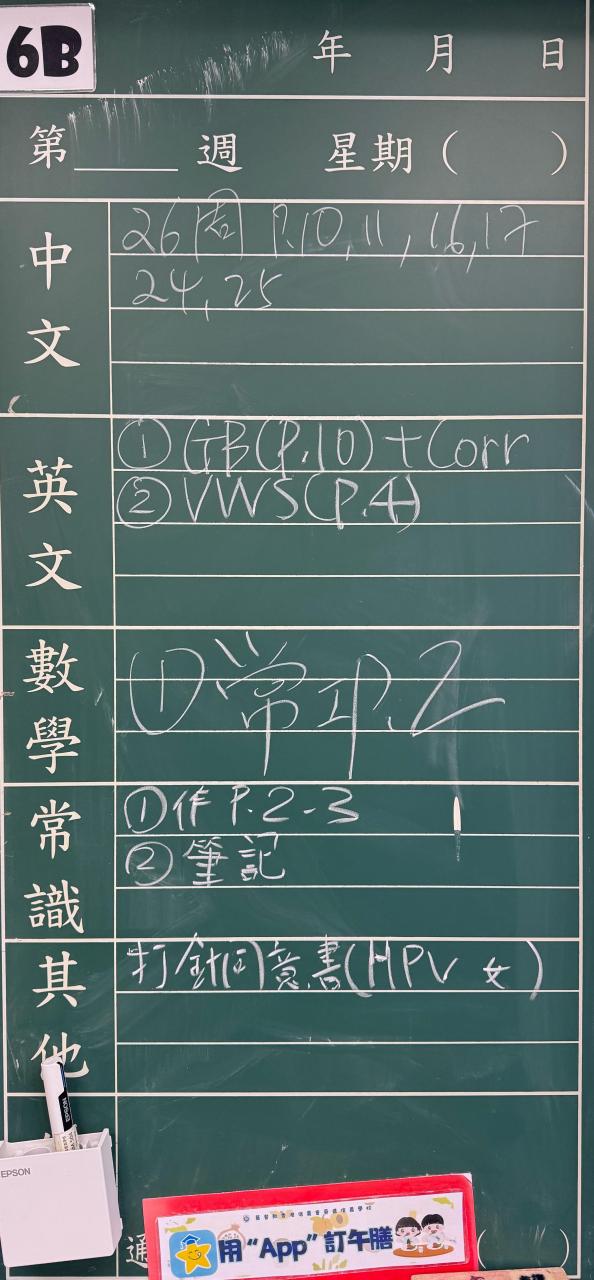 6B
年 月 日
第____週 星期( )
中文
26周 P.10,11,16,17
24,25
英文
①GB(P.10)+Corr
②VWS(P.4)
數學
①常工P.2
常識
①作P.2-3
②筆記
其他
打針同意書(HPV 女)
EPSON
EPSON
通
( )
用“App”訂午膳